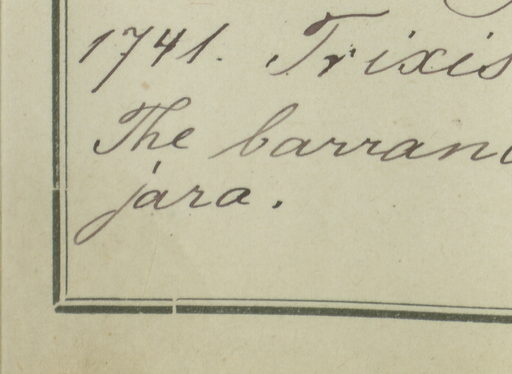 1741. Trixis
The barran
jara.